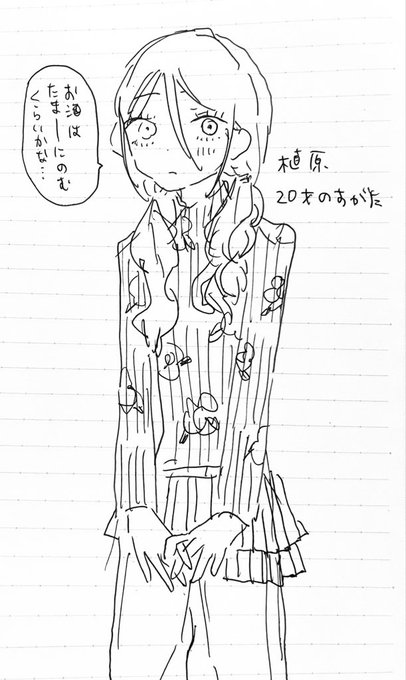 お酒は
たまーにのむ
くらいかな…
植原
20才のすがた